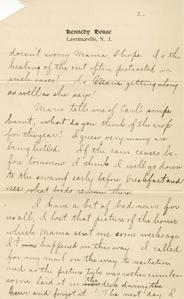 2.
Kennedy House
Lawrenceville, N. J.
doesn't worry Mama I hope. Is the
healing of the cut often protracted in
such cases? Is Marie getting along
as well as she says?
Marie tells me of Carl's
hurt, what do you think of the crop
for this year? I guess very many are
being killed. If the rain ceases be-
fore tomorrow I think I will go down
to the swamp early before breakfast and
see what birds remain there.
I have a bit of bad news for
us all, I lost that picture of the house
which Mama sent me some weeks ago
It happened in this way. I called
for my mail on the way to recitation
and as the picture tube was rather
some laid it in desk during the
hour and forgot it. The next day I